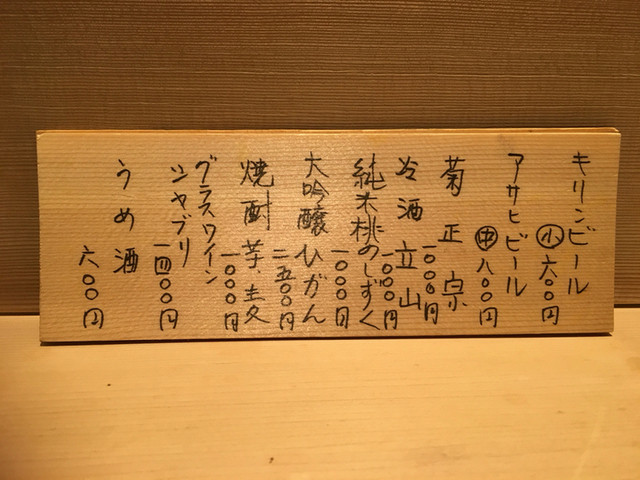 キリンビール
㊙小 六〇〇円
アサヒビール
㊥ 八〇〇円
菊正宗
一〇〇〇円
冷酒 立山
一〇〇〇円
純米桃のしずく
一〇〇〇円
大吟醸 ひがん
二五〇〇円
焼酎 芋、麦
一〇〇〇円
グラスワイン
シャブリ
一四〇〇円
うめ酒
六〇〇円